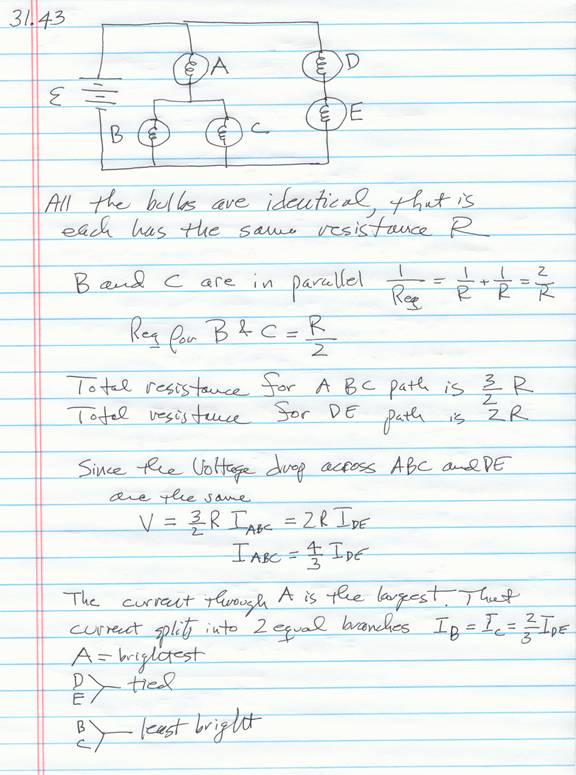 31.43
A D
ε E
B C
All the bulbs are identical, that is
each has the same resistance R
B and C are in parallel 1/Req = 1/R + 1/R = 2/R
Req for B & C = R/2
Total resistance for A BC path is 3/2 R
Total resistance for DE path is 2R
Since the Voltage drop across ABC and DE
are the same
V = 3/2 R I_ABC = 2R I_DE
I_ABC = 4/3 I_DE
The current through A is the largest. That
current splits into 2 equal branches I_B = I_C = 2/3 I_DE
A = brightest
D
E > tied
B
C > least bright